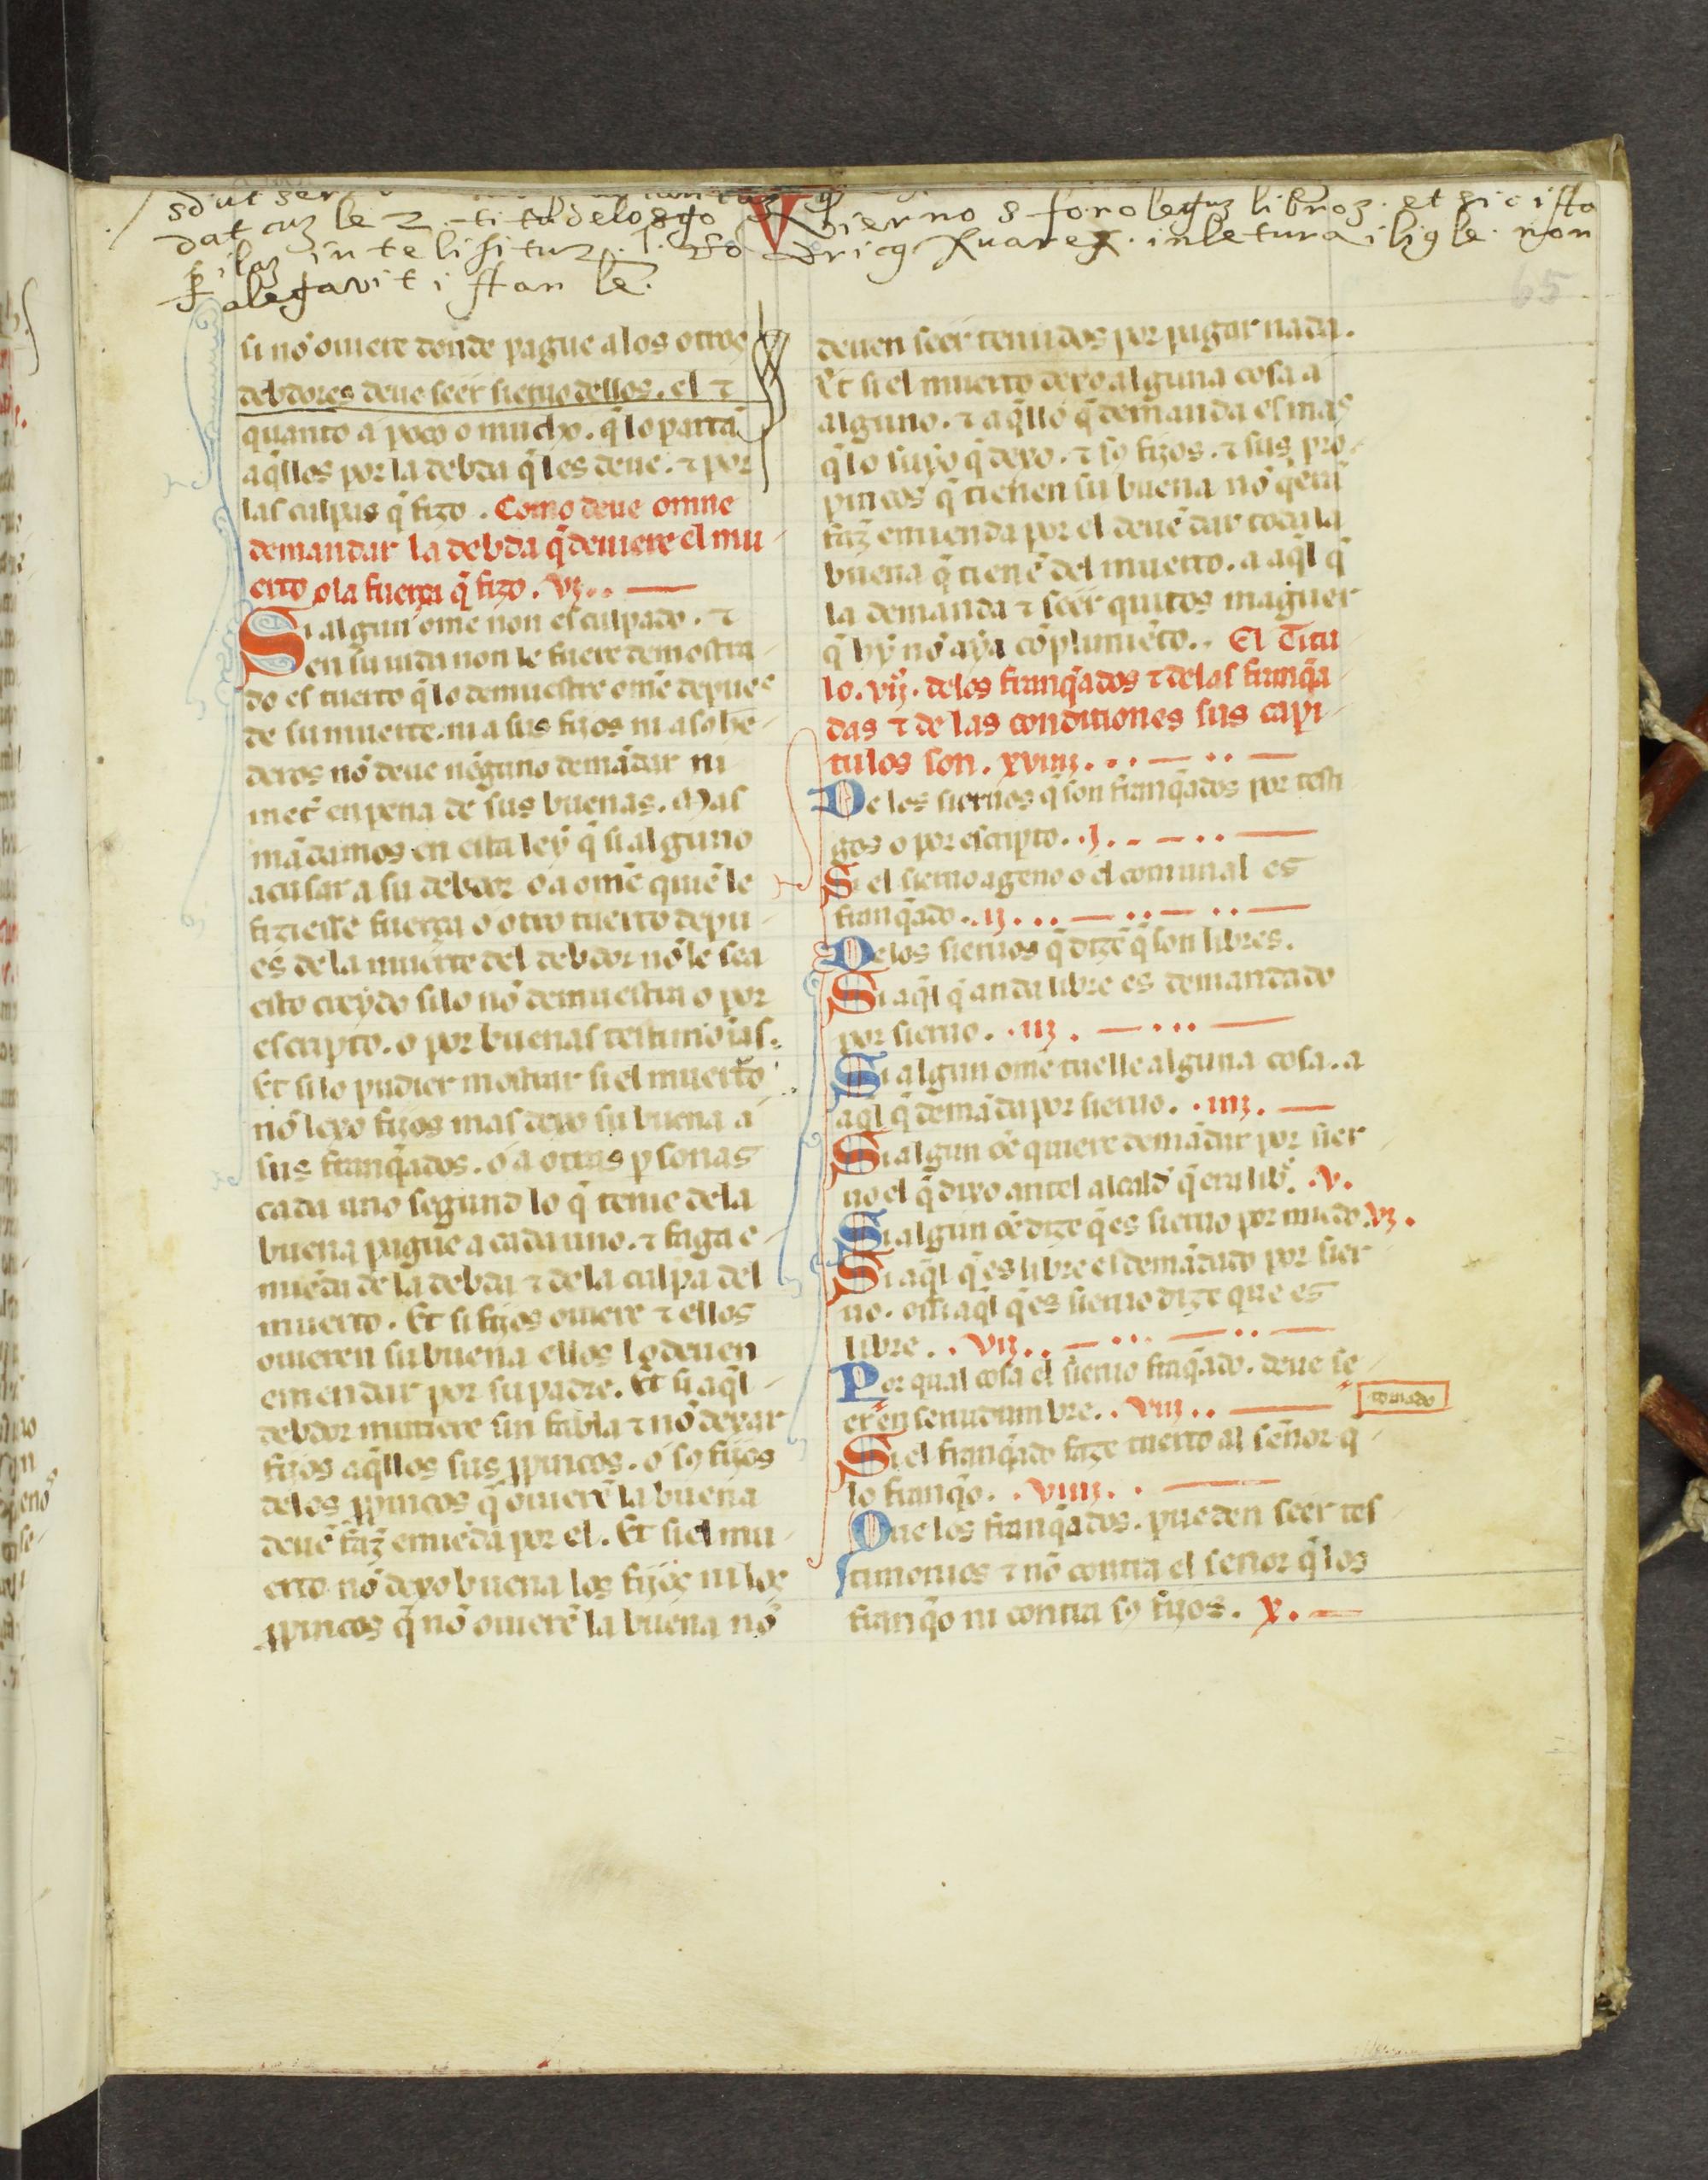 dat cuȝ le 2 titul delos go vierno s foro leguȝ libroȝ. et sic ista
intelisitur. l. ro dricȝ Xuarez. in letura i lig le. non
alegavit istan le.
65
si nõ ouiere donde pague a los otros
debdores deue seer sieruo dellos. el ⁊
quanto a poco o mucho. q̃ lo partã
aq̃llos por la debda q̃ les deue. ⁊ por
las culpas q̃ fizo. Como deue omne
demandar la debda q̃ deuiere el mu
erto o la fuerça q̃ fizo. vj..
Si algun ome non es culpado. ⁊
en su uida non le fuere demostra
do el tuerto q̃ lo demuestre omẽ depues
de su muerte. ni a sus fijos ni a so he
deros nõ deue nẽguno demãdar ni
met̃ en pena de sus buenas. Mas
mãdamos en esta leẏ q̃ si alguno
acusar a su debdor o a omẽ quiẽ le
fiziesse fuerça o otro tuerto depu
es de la muerte del debdor nõ le sea
esto creẏdo si lo nõ demuestra o por
escripto. o por buenas testimoñias.
Et si lo pudier mostrar si el muerto
nõ lexo fijos mas dexo su buena a
sus franq̃ados. o a otras ꝑsonas
cada uno segund lo q̃ tiene de la
buena pague a cada uno. ⁊ faga e
miẽda de la debda ⁊ de la culpa del
muerto. Et si fijos ouiere ⁊ ellos
ouieren su buena ellos lo deuen
emendar por su padre. Et si aq̃l
debdor muriere sin fabla ⁊ nõ dexar
fijos aq̃llos sus ꝓpincos. o so fijos
de los ꝓpincos q̃ ouierẽ la buena
deuẽ faz̃ emiẽda por el. Et si el mu
erto nõ dexo buena los fijos ni los
ꝓpincos q̃ nõ ouierẽ la buena nõ
deuen seer tenudos por pagar nada.
Et si el muerto dexo alguna cosa a
alguno. ⁊ aq̃llo q̃ demanda es mas
q̃ lo suẏo q̃ dexo. ⁊ so fijos. ⁊ sus pro
pincos q̃ tienen su buena nõ q̃rran
faz̃ emienda por el deuẽ dar toda la
buena q̃ tienẽ del muerto. a aq̃l q̃
la demanda ⁊ seer quitos maguer
q̃ hẏ nõ aẏa cõplimiẽto.. El Titu
lo. vij. de los franq̃ados ⁊ de las franq̃a
das ⁊ de las conditiones sus capi
tulos son. xviiij...
De los sieruos q̃ son franq̃ados por testi
gos o por escripto. .j.
Si el sieruo ageno o el comunal es
franq̃ado. .ij...
De los sieruos q̃ dizẽ q̃ son libres.
Si aq̃l q̃ anda libre es demandado
por sieruo. .iij.
Si algun ome tuelle alguna cosa. a
aq̃l q̃ demãda por sieruo. .iiij.
Si algun oẽ quiere demãdar por sier
uo el q̃ dixo antel alcald̃ q̃ era lib̃. .v.
Si algun oẽ dize q̃ es sieruo por miedo. vj.
Si aq̃l q̃ es libre es demãdado por sier
uo. o si aq̃l q̃ es sieruo dize que es
libre. .vij..
Por qual cosa el sieruo fraq̃ado. deue se
er en seruidumbre. .viij.. tornado
Si el franq̃ado faze tuerto al señor q̃
lo franq̃o. .viiij.
Que los franq̃ados. pueden seer tes
timonios ⁊ nõ contra el señor q̃ los
franq̃o ni contra so fijos. x.